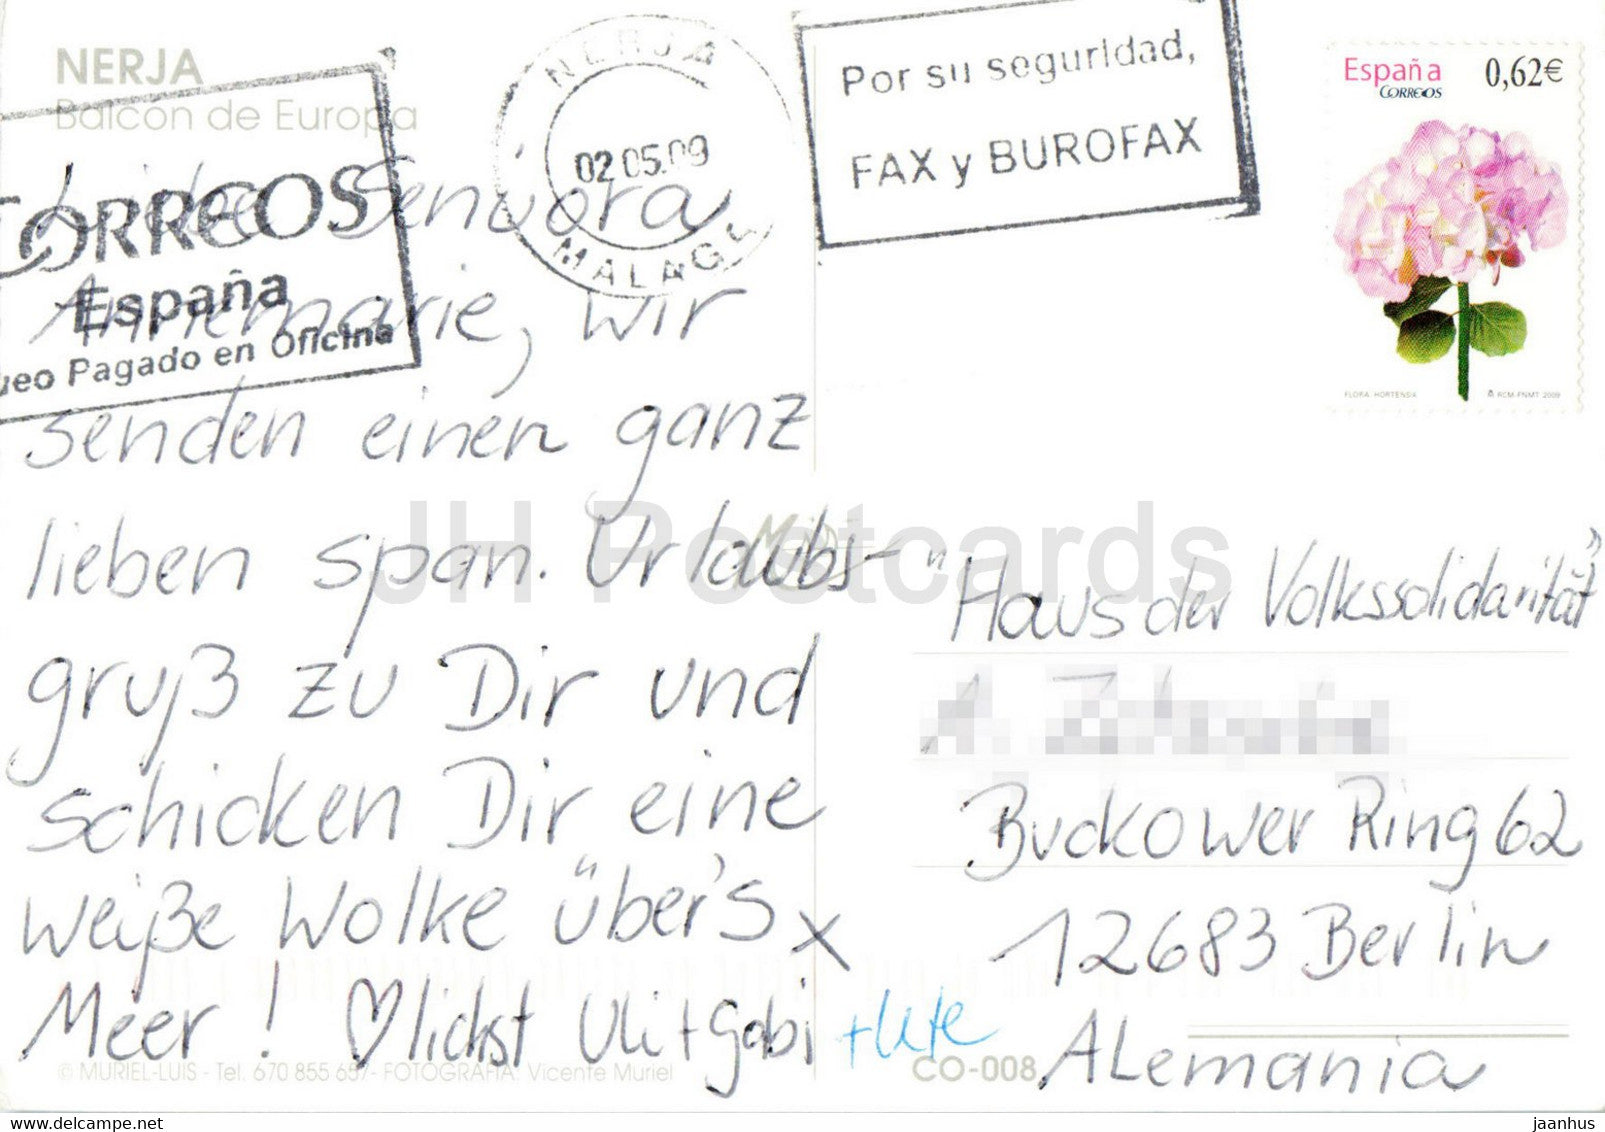 NERJA
Balcón de Europa
CORREOS
España
Pagado en Oficina
NERJA
02 05.09
MALAGA
Por su seguridad,
FAX y BUROFAX
España 0,62€
CORREOS
FLORA. HORTENSIA RCM-FNMT 2009
Liebe Senuora
Annemarie, wir
senden einen ganz
lieben span. Urlaubs-
gruß zu Dir und
schicken Dir eine
weiße Wolke über's
Meer! ♡lichst Uli + Gabi + Ute
"Haus der Volkssolidarität"
Buckower Ring 62
12683 Berlin
ALemania
© MURIEL-LUIS - Tel. 670 855 657 - FOTOGRAFIA: Vicente Muriel
CO-008
JH Postcards
www.delcampe.net
jaanhus